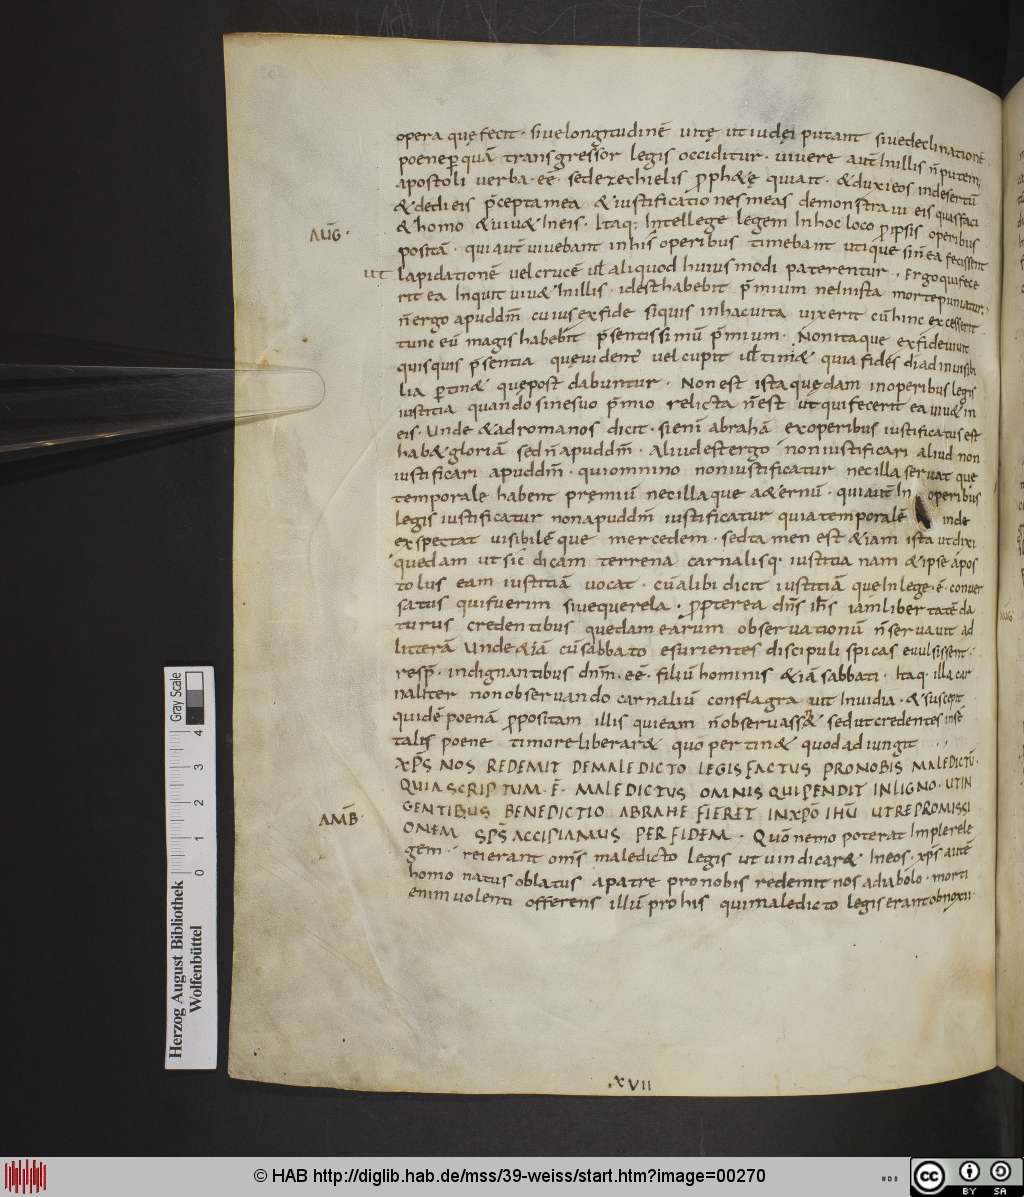 opera quę fecit · siue longitudinē uitę ut iudęi putant siue declinationē
poene ꝑ quā transgressor legis occiditur · uiuere aut̄ In illis n̄ putem
apostoli uerba · eē · sed ezechielis ꝓph&ę qui ait · & duxi eos in desertū
& dedi eis p̄cepta mea & iustificationes meas demonstraui eis quas faci&
AUḠ ·
& homo & uiu& In eis · Itaq; Intellege legem In hoc loco ꝓ ipsis operibus
positā · qui aut̄ uiuebant in his̄ operibus timebant utique sin̄ ea fecissent
ut lapidationē uel crucē ul̄ aliquod huius modi paterentur · ergo qui fece
rit ea Inquit uiu& In illis · id est habebit p̄mium ne In ista morte puniatur ·
n̄ ergo apud dm̄ cuius ex fide si quis in hac uita uixerit cū hinc excesserit
tunc eū magis habebit p̄sentissimū p̄mium · Non itaque ex fide uiuit
quisquis p̄sentia quę uident̄ uel cupit ul̄ tim& quia fides di ad inuisibi
lia ꝑtin& quę post dabuntur · Non est ista quędam in operibus legis
iustitia quando sine suo p̄mio relicta n̄ est ut qui fecerit ea uiu& in
eis · Unde & ad romanos dicit · si eni abrahā ex operibus iustificatus est
hab& gloriā sed n̄ apud dm̄ · Aliud est ergo non iustificari aliud non
iustificari apud dm̄ · qui omnino non iustificatur nec illa seruat que
temporale habent premiū nec illa que aeternū · qui aut̄ In operibus
legis iustificatur non apud dm̄ iustificatur quia temporalē inde
expectat uisibilē que mercedem · sed tamen est &iam ista ut dixi
quedam ut sic dicam terrena carnalisq · iustitia nam & ipse apos
tolus eam iustitiā uocat · cū alibi dicit iustitiā que In lege · ē · conuer
satus qui fuerim sine querela · ꝓpterea dn̄s ih̄s iam libertatē da
turus credentibus quedam earum obseruationū n̄ seruauit ad
litterā Unde &iā cū sabbato esurientes discipuli spicas euulsissent ·
resp̄ · indignantibus dnm̄ · eē · filiū hominis &iā sabbati · Itaq · illa car
naliter non obseruando carnaliū conflagrauit Inuidia · & suscepit
quidē poenā ꝓpositam illis qui eam n̄ obseruass& sed ut credentes in sē
talis poene timore liberar& quo pertin& quod adiungit
XP̄S NOS REDEMIT DE MALEDICTO LEGIS FACTUS PRO NOBIS MALEDICTŪ ·
QUIA SCRIPTUM · Ē · MALEDICTUS OMNIS QUI PENDIT IN LIGNO · UT IN
GENTIBUS BENEDICTIO ABRAHE FIERET IN XPŌ IHŪ UT REPROMISSI
AMB̄ ·
ONEM SPS̄ ACCIPIAMUS PER FIDEM · Quō nemo poterat Implere le
gem · reierant omīs maledicto legis ut uindicar& In eos · xp̄s autē
homo natus oblatus a patre pro nobis redemit nos a diabolo · morti
enim uolenti offerens illū pro his qui maledicto legis erant obnoxii ·
· XVII
Herzog August Bibliothek
Wolfenbüttel
Gray Scale
0 1 2 3 4
© HAB http://diglib.hab.de/mss/39-weiss/start.htm?image=00270
cc BY SA